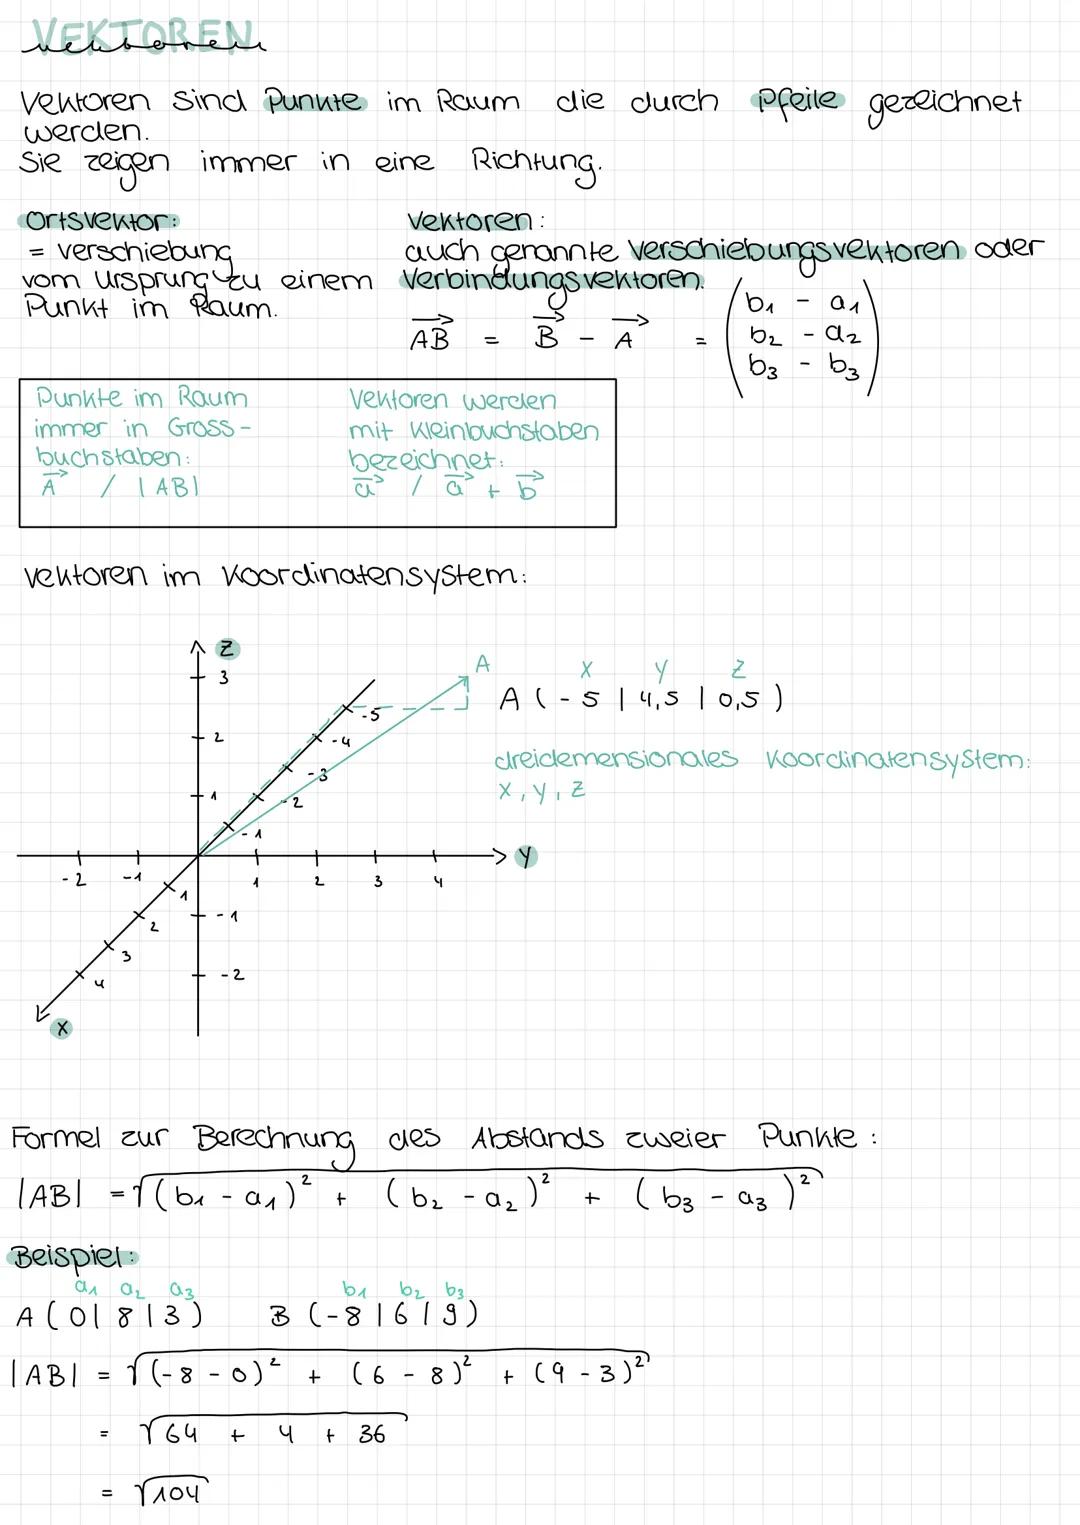 VEKTOREN
vektoren
Vektoren sind Punkte im Raum die durch Pfeile gezeichnet
werden.
Sie zeigen immer in eine Richtung.
Ortsvektor:
= verschiebung
vom Ursprung zu einem
Punkt im Raum.
Vektoren:
auch genannte verschiebungsvektoren oder
Verbindungsvektoren.
→AB = →B - →A = (b₁ - a₁
b₂ - a₂
b₃ - b₃)
Punkte im Raum
immer in Gross-
buchstaben:
→A / |AB|
Vektoren werden
mit Kleinbuchstaben
bezeichnet:
→a / →a + →b
Vektoren im Koordinatensystem:
Z
3
2
1
-1
-2
-2 -1 1 2 3 4 Y
-5
-4
-3
-2
-1
1
2
3
4
X
A
X Y Z
A (-5 | 4,5 | 0,5)
dreidemensionales Koordinatensystem:
X, Y, Z
Formel zur Berechnung des Abstands zweier Punkte:
|AB| = √(b₁ - a₁)² + (b₂ - a₂)² + (b₃ - a₃)²
Beispiel:
a₁ a₂ a₃ b₁ b₂ b₃
A (0|8|3) B (-8|6|9)
|AB| = √(-8 - 0)² + (6 - 8)² + (9 - 3)²
= √64 + 4 + 36
= √104